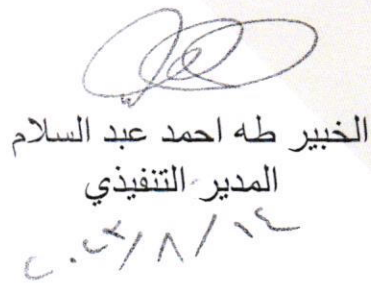 الخبير طه احمد عبد السلام
المدير التنفيذي
٢٠٢٣/٨/١٤